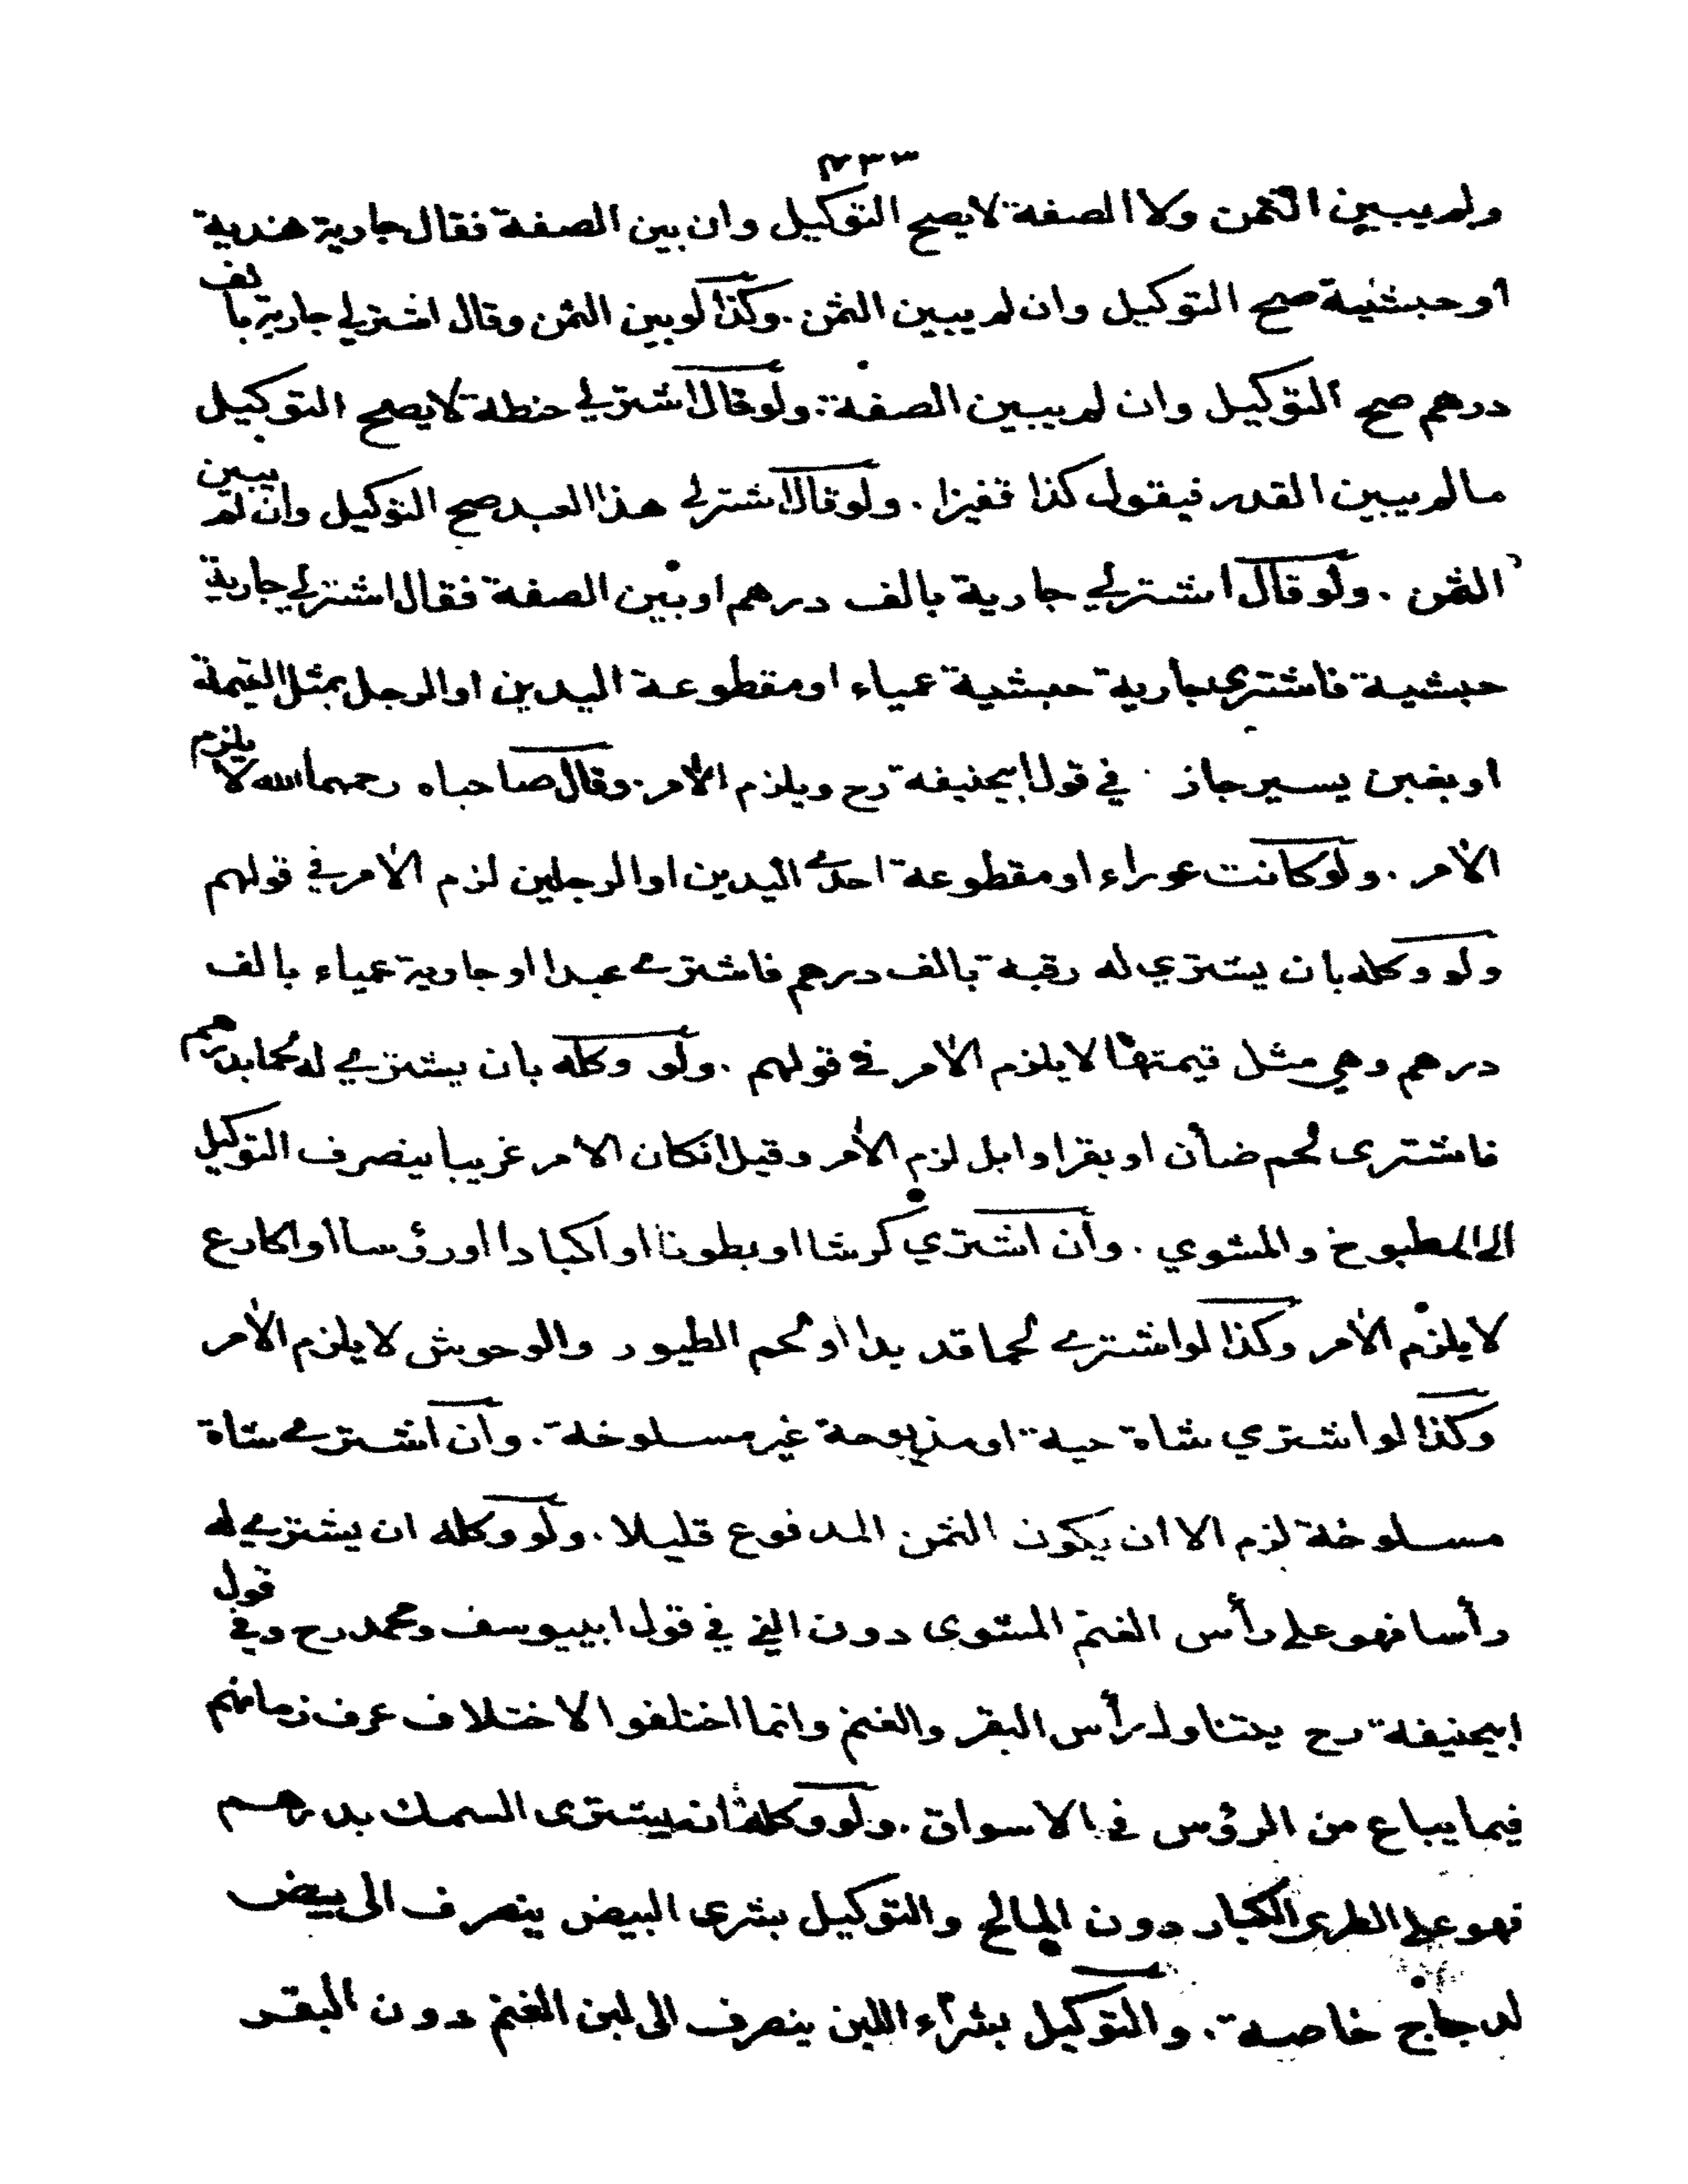 ٢٣٣
ولم يبين الثمن ولا الصفة لا يصح التوكيل وان بين الصفة فقال جارية هندية
او حبشية صح التوكيل وان لم يبين الثمن . وكذا لو بين الثمن وقال اشتر لي جارية بالف
درهم صح التوكيل وان لم يبين الصفة . ولو قال اشتر لي حنطة لا يصح التوكيل
ما لم يبين القدر فيقول كذا قفيزا . ولو قال اشتر لي هذا العبد صح التوكيل وان لم يبين
الثمن . ولو قال اشتر لي جارية بالف درهم او بين الصفة فقال اشتر لي جارية
حبشية فاشترى جارية حبشية عمياء او مقطوعة اليدين او الرجل بمثل القيمة
او بغبن يسير جاز في قول ابيحنيفة رح ويلزم الأمر . وقال صاحباه رحمهما الله لا يلزم
الأمر . ولو كانت عوراء او مقطوعة احدى اليدين او الرجلين لزم الأمر في قولهم
ولو وكله بان يشتري له رقبة بالف درهم فاشترى عبدا او جارية عمياء بالف
درهم وهي مثل قيمتها لا يلزم الأمر في قولهم . ولو وكله بان يشتري له لحما بدرهم
فاشترى لحم ضأن او بقر او ابل لزم الأمر وقيل انكان الامر غريبا ينصرف التوكيل
الى المطبوخ والمشوي . وان اشتري كرشا او بطونا او اكبادا او رؤسا او اكارع
لا يلزم الأمر وكذا لو اشترى لحما قد بدا او لحم الطيور والوحوش لا يلزم الأمر
وكذا لو اشتري شاة حية او مذبوحة غير مسلوخة . وان اشترى شاة
مسلوخة لزم الا ان يكون الثمن المدفوع قليلا . ولو وكله ان يشتري له
رأسا فهو على رأس الغنم المشوى دون الني في قول ابييوسف ومحمد رح وفي قول
ابيحنيفة رح يتناول رأس البقر والغنم وانما اختلفوا لاختلاف عرف زمانهم
فيما يباع من الرؤس في الاسواق . ولو وكله بان يشترى السمك بدرهم
فهو على الطرى الكبار دون المالح والتوكيل بشرى البيض ينصرف الى بيض
لدجاج خاصة . والتوكيل بشراء اللبن ينصرف الى لبن الغنم دون البقر